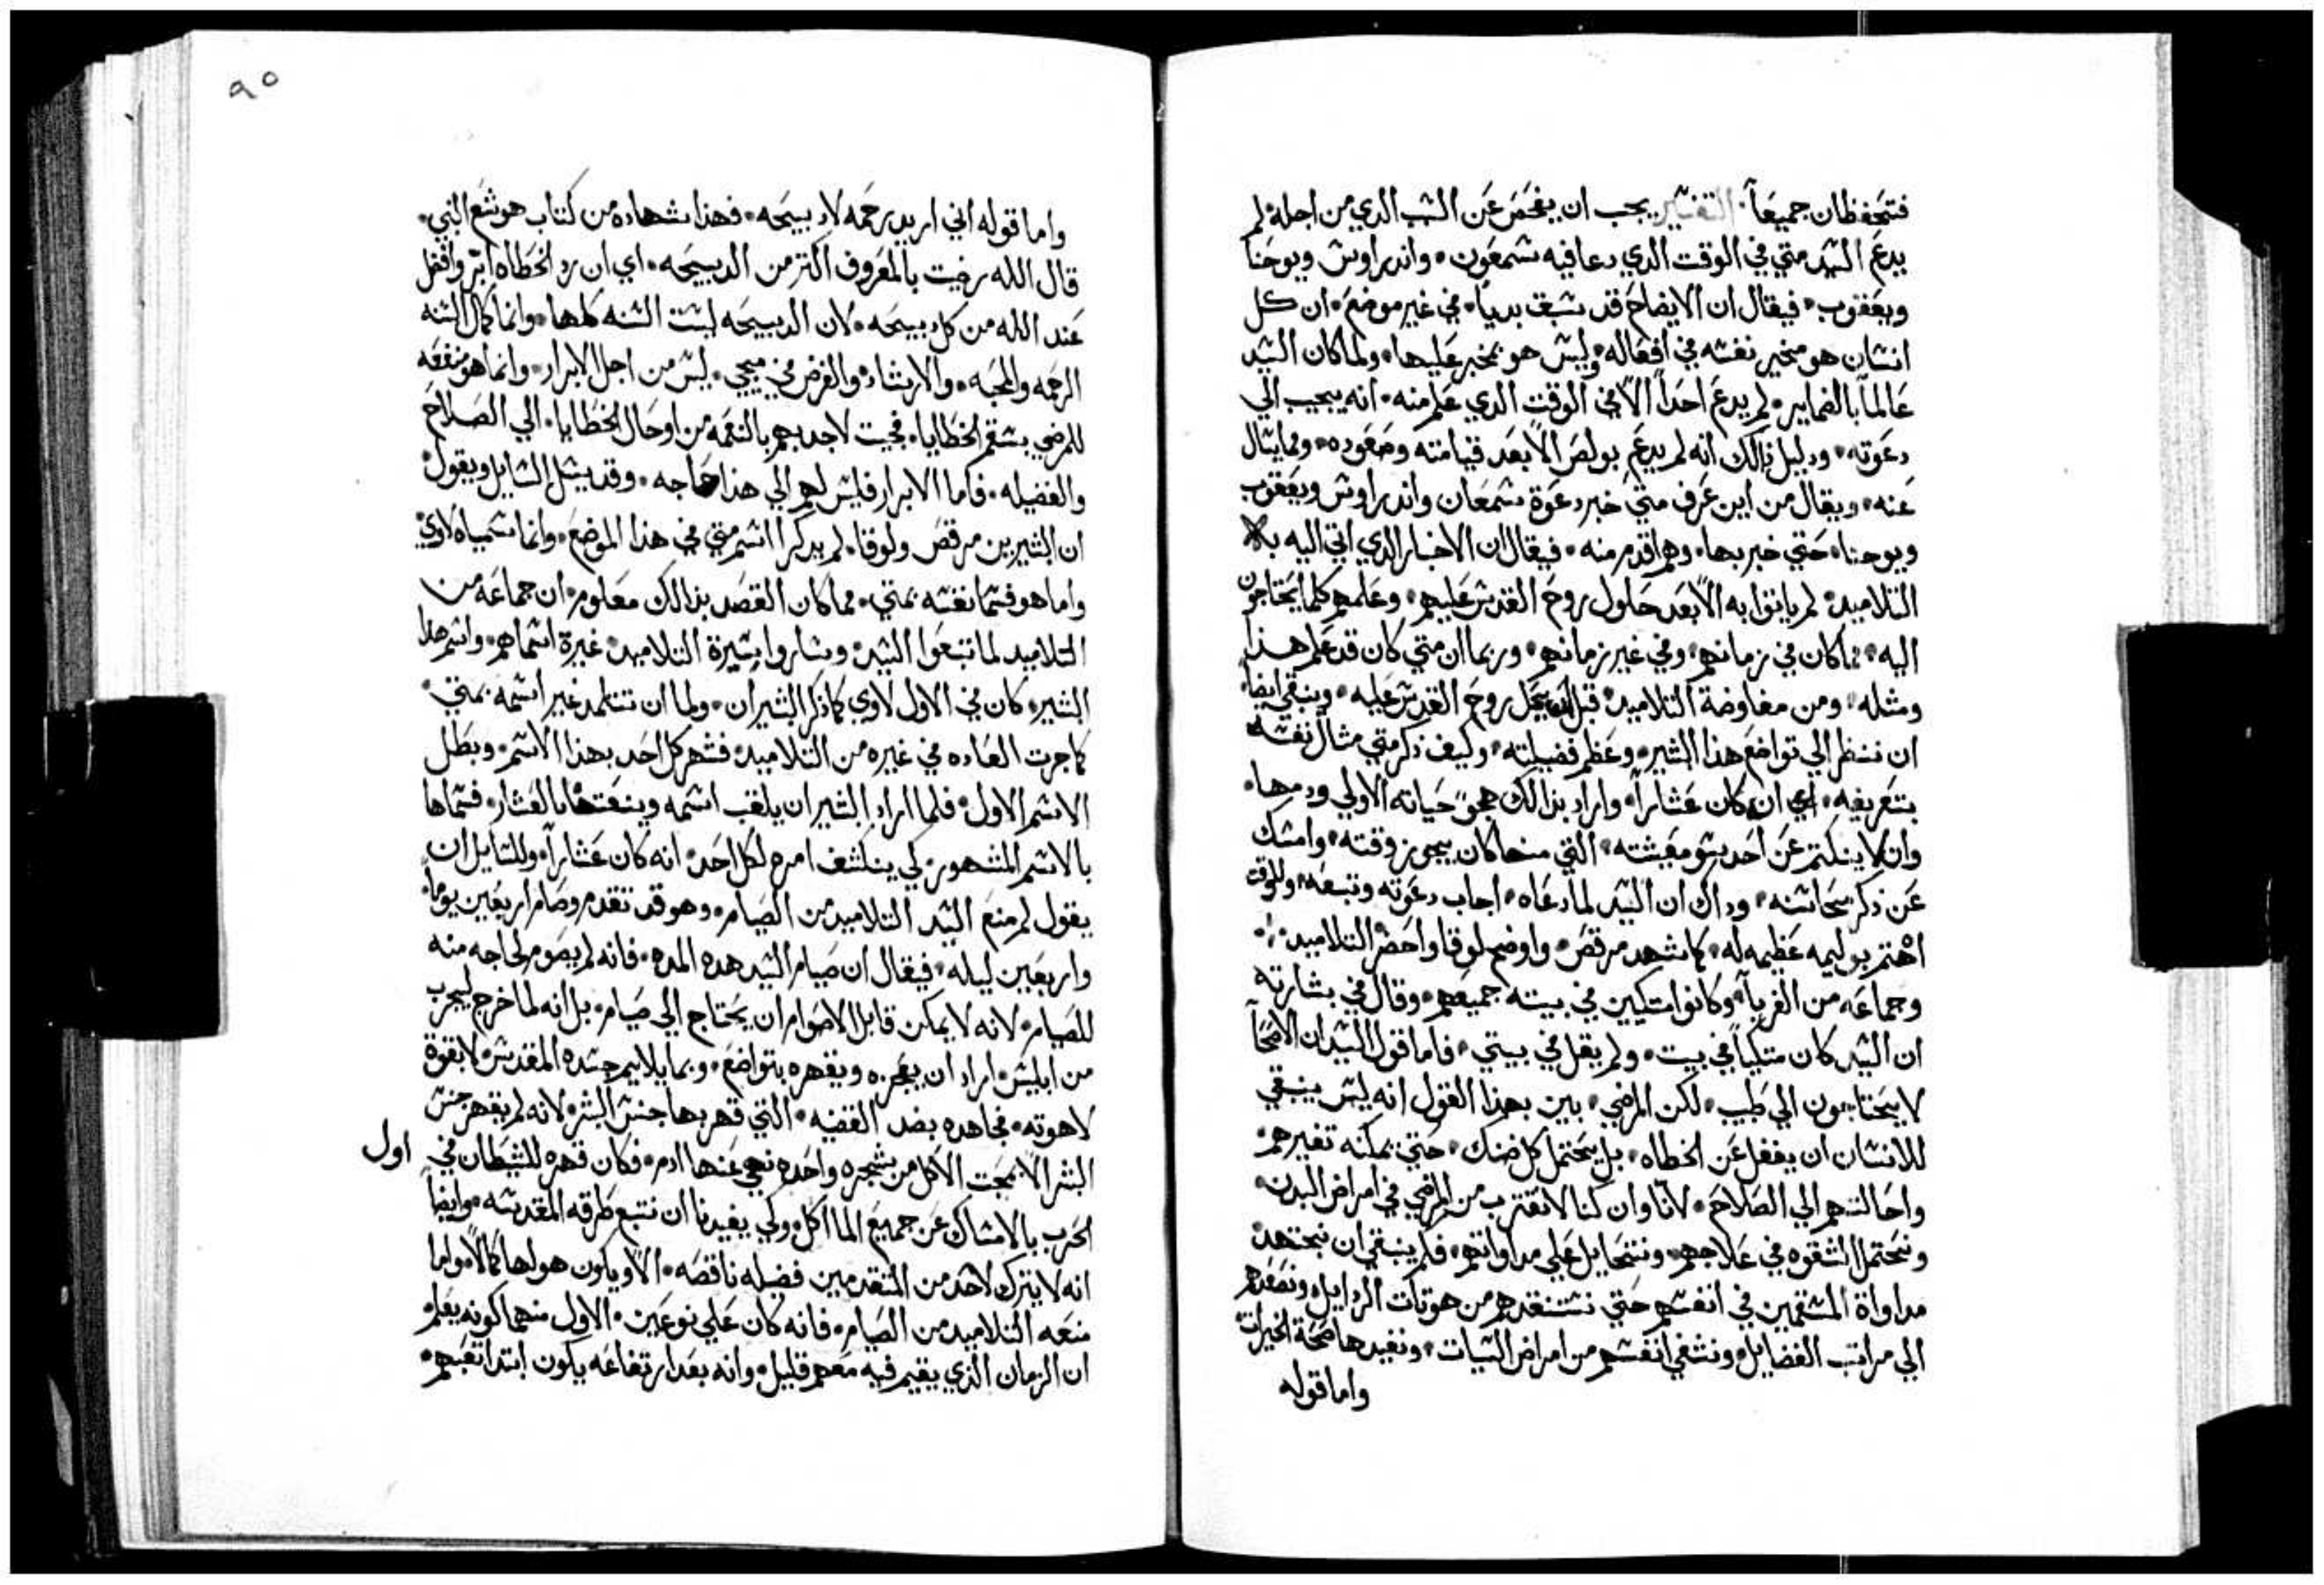 فتحفظان جميعاً. التفسير يجب ان يفحص عن السبب الدي من اجله لم
يدع السيد متي في الوقت الدي دعا فيه سمعون. واندراوس ويوحنا
ويعقوب. فيقال ان الايضاح قد سبق بدياً. في غير موضع. ان كل
انسان هو مخير نفسه في افعاله. وليس هو بمخبر عليها. ولما كان السيد
عالماً بالضماير. لم يدع احداً الا في الوقت الدي علم منه. انه يجيب الي
دعوته. ودليل ذالك انه لم يدع بولص الا بعد قيامته وصعوده. ومما يسال
عنه. ويقال من اين عرف متي خبر دعوة سمعان واندراوس ويعقوب
ويوحنا. حتي خبر بها. وهم اقدم منه. فيقال ان الاخبار الدي اتي اليه
التلاميد. لم ياتوا به الا بعد حلول روح القدس عليهم. وعلمهم كلما يحتاجون
اليه. مما كان في زمانهم. وفي غير زمانهم. وربما ان متي كان قد علم هذا
ومثله. ومن مفاوضة التلاميد. قبل ان يحل روح القدس عليه. وينبغي ايضاً
ان ننظر الي تواضع هذا البشير. وعظم فضيلته. وكيف ذكر متي مثال نفسه
بتعريفه. اي انه كان عشاراً. واراد بذالك هجو حياته الاولي ودمها.
وان لا ينكتم عن احد سو معيشته. التي منها كان يجوز وقته. وامسك
عن ذكر محاسنه. وداك ان السيد لما دعاه. اجاب دعوته وتبعه. وللوقت
اهتم بوليمه عظيمه له. كما شهد مرقص. واوضح لوقا واحضر التلاميد.
وجماعه من الغربآ. وكانوا متكيين في بيته جميعهم. وقال في بشارته
ان السيد كان متكياً في بيت. ولم يقل في بيتي. فاما قول السيد ان الاصحآ
لا يحتاجون الي طبيب. لكن المرضي. بين بهذا القول انه ليس ينبغي
للانسان ان يغفل عن الخطاه. بل يحتمل كل ضنك. حتي يمكنه تغييرهم.
واحالتهم الي الصلاح. لانا وان كنا لا نقترب من المرضي في امراض البدن.
ونحتمل الشقوه في علاجهم. ونتحايل علي مداواتهم. فلم ينبغي ان نجتهد
مداواة المسقمين في انفسهم حتي نستنقدهم من هوتات الردايل. ونصعدهم
الي مراتب الفضايل. ونشفي انفسهم من امراض السيات. ونفيدها صحة الخيرات
واما قوله
٩٠
واما قوله اني اريد رحمه لا دبيحه. فهذا شهاده من كتاب هوشع النبي.
قال الله رضيت بالمعروف اكتر من الدبيحه. اي ان رد الخطاه ابر وافضل
عند الله من كل دبيحه. لان الدبيحه ليست السنه كلها. وانما كمال السنه
الرحمه والمحبه. والارشاد. والغرض في مجيي. ليس من اجل الابرار. وانما هو منفعه
للمرضي بسقم الخطايا. فجيت لاجدبهم بالنعمه من اوحال الخطايا. الي الصلاح
والفضيله. فاما الابرار فليس لهم الي هذا حاجه. وقد يسل السايل ويقول
ان البشيرين مرقص ولوقا. لم يدكرا اسم متي في هذا الموضع. وانما سمياه لاوي
واما هو فسما نفسه بمتي. مما كان القصد بذالك معلوم. ان جماعه من
التلاميد لما تبعوا السيد. وساروا بسيرة التلاميد. غيرة اسماهم. واسم هدا
البشير. كان في الاول لاوي كما ذكر البشيران. ولما ان تتلمد غير اسمه بمتي.
كما جرت العاده في غيره من التلاميد. فشهر كل احد بهذا الاسم. وبطل
الاسم الاول. فلما اراد البشير ان يلقب اسمه وينعتها بالعشار. فسماها
بالاسم المشهور. كي ينكشف امره لكل احد. انه كان عشاراً. وللسايل ان
يقول لم منع السيد التلاميد من الصيام. وهو قد تقدم وصام اربعين يوماً.
واربعين ليله. فيقال ان صيام السيد هده المده. فانه لم يصوم لحاجه منه
للصيام. لانه لا يمكن قابل الاصوام ان يحتاج الي صيام. بل انه لما خرج ليجرب
من ابليس. اراد ان يعجزه ويقهره بتواضع. وبما يلايم جسده المقدس. لا بقوة
لاهوته. فجاهده بضد القضيه. التي قهر بها جنس البشر. لانه لم يقهر جنس
البشر الا بمحبت الاكل من شجره واحده نهي عنها ادم. فكان قهره للشيطان في اول
الحرب بالامساك عن جميع الماكل. وكي يفيدنا ان نتبع طرقه المقدسه. وايضاً
انه لا يترك لاحد من المتقدمين فضيله ناقصه. الا ويكون هو لها كمالاً. واما
منعه التلاميد من الصيام. فانه كان علي نوعين. الاول منهما كونه يعلم
ان الزمان الذي يقيم فيه معهم قليل. وانه بعد ارتفاعه يكون ابتدا تعبهم.